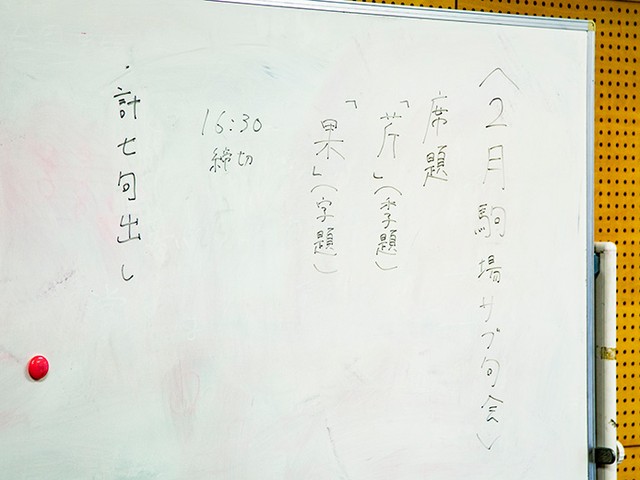 〈2月駒場サブ句会〉
席題
「芹」(季題)
「果」(字題)
16:30
締切
・計七句出し